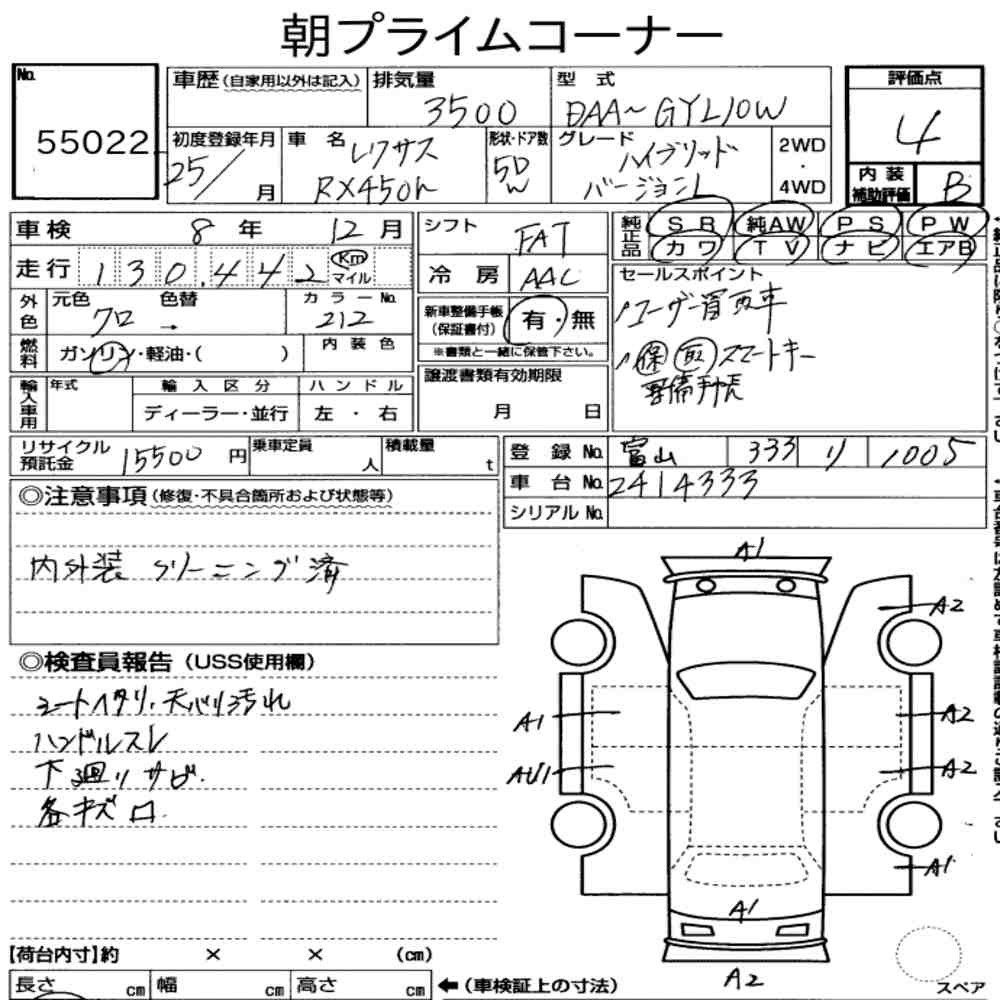 朝プライムコーナー
No. 55022
車歴(自家用以外は記入)
排気量 3500
型式 DAA~GYL10W
評価点 4
初度登録年月 25/ 月
車名 レクサス RX450h
形状・ドア数 5D W
グレード ハイブリッド バージョンL
2WD・4WD
内装補助評価 B
車検 8年 12月
シフト FAT
純正品 SR 純AW PS PW
カワ TV ナビ エアB
走行 130,442 Km マイル
冷房 AAC
セールスポイント
外色 元色 クロ → 色替
カラーNo. 212
新車整備手帳(保証書付) 有・無
※書類と一緒に保管下さい。
・ユーザー買取車
燃料 ガソリン・軽油・( )
内装色
・保 取 スマートキー
整備手帳
輸入車用 年式
輸入区分 ディーラー・並行
ハンドル 左・右
譲渡書類有効期限 月 日
リサイクル預託金 15500円
乗車定員 人
積載量 t
登録No. 富山 333 リ 1005
車台No. 2414333
シリアルNo.
◎注意事項(修復・不具合箇所および状態等)
内外装 クリーニング済
◎検査員報告(USS使用欄)
シートヘタリ・天バリ汚れ
ハンドルスレ
下廻りサビ.
各キズ
A1
A2
A1
A2
AU1
A2
A1
A1
A2
スペア
【荷台内寸】約 × × (cm)
長さ cm 幅 cm 高さ cm
←(車検証上の寸法)